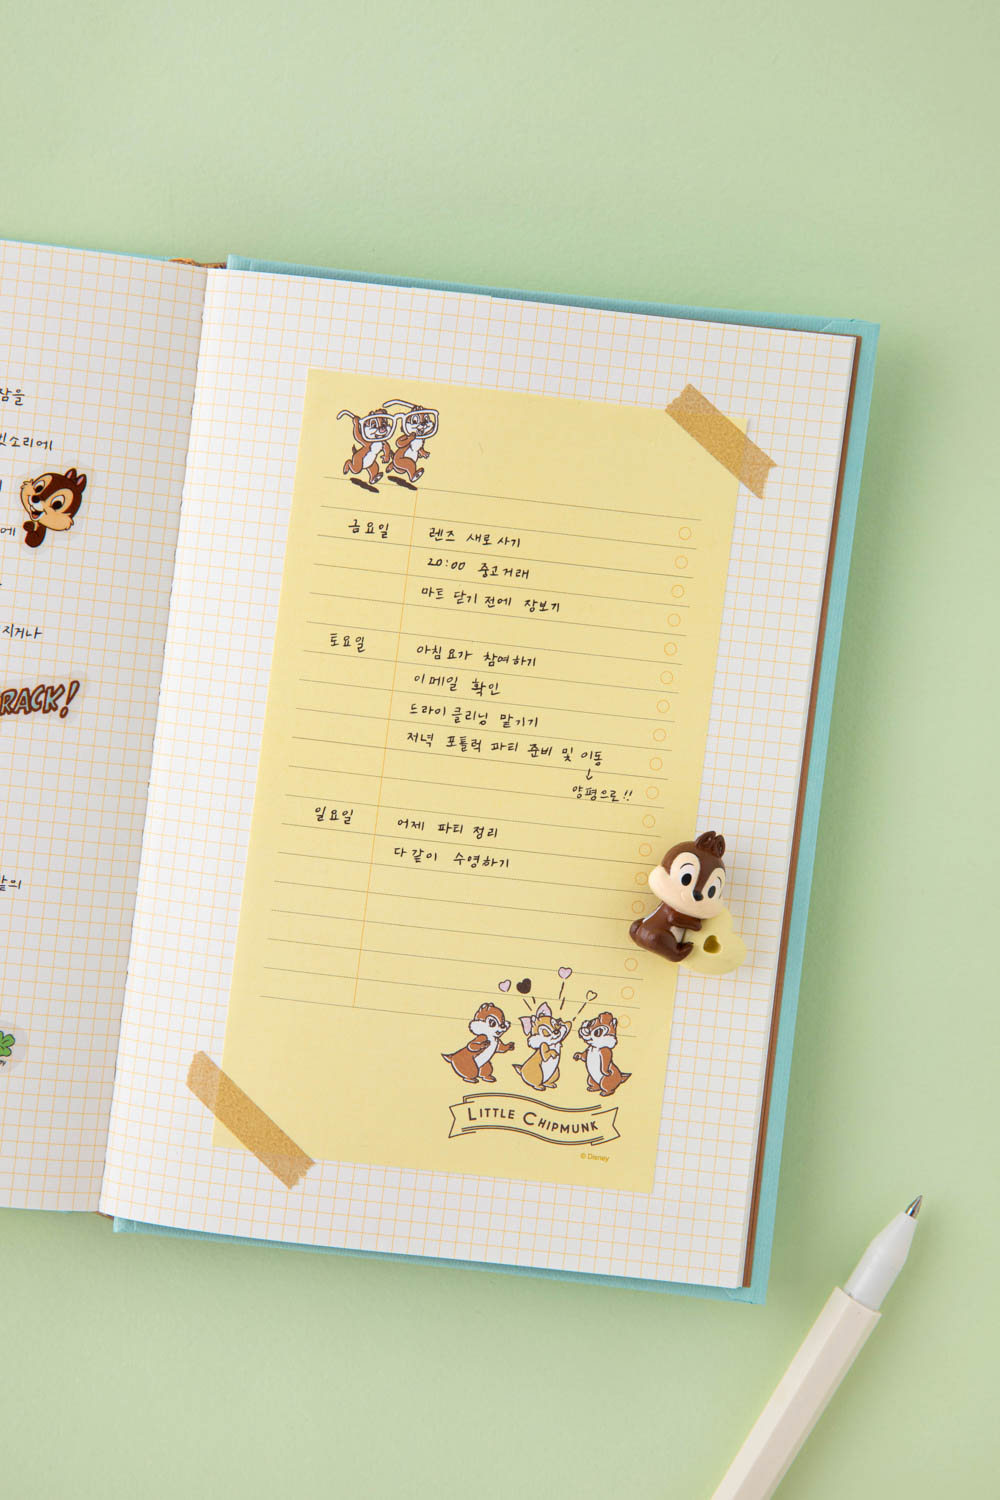 잠을
빗소리에
에
지거나
RACK!
같의
금요일 렌즈 새로 사기
20:00 중고거래
마트 닫기 전에 장보기
토요일 아침 요가 참여하기
이메일 확인
드라이 클리닝 맡기기
저녁 포틀럭 파티 준비 및 이동
↓
양평으로!!
일요일 어제 파티 정리
다같이 수영하기
LITTLE CHIPMUNK
© Disney